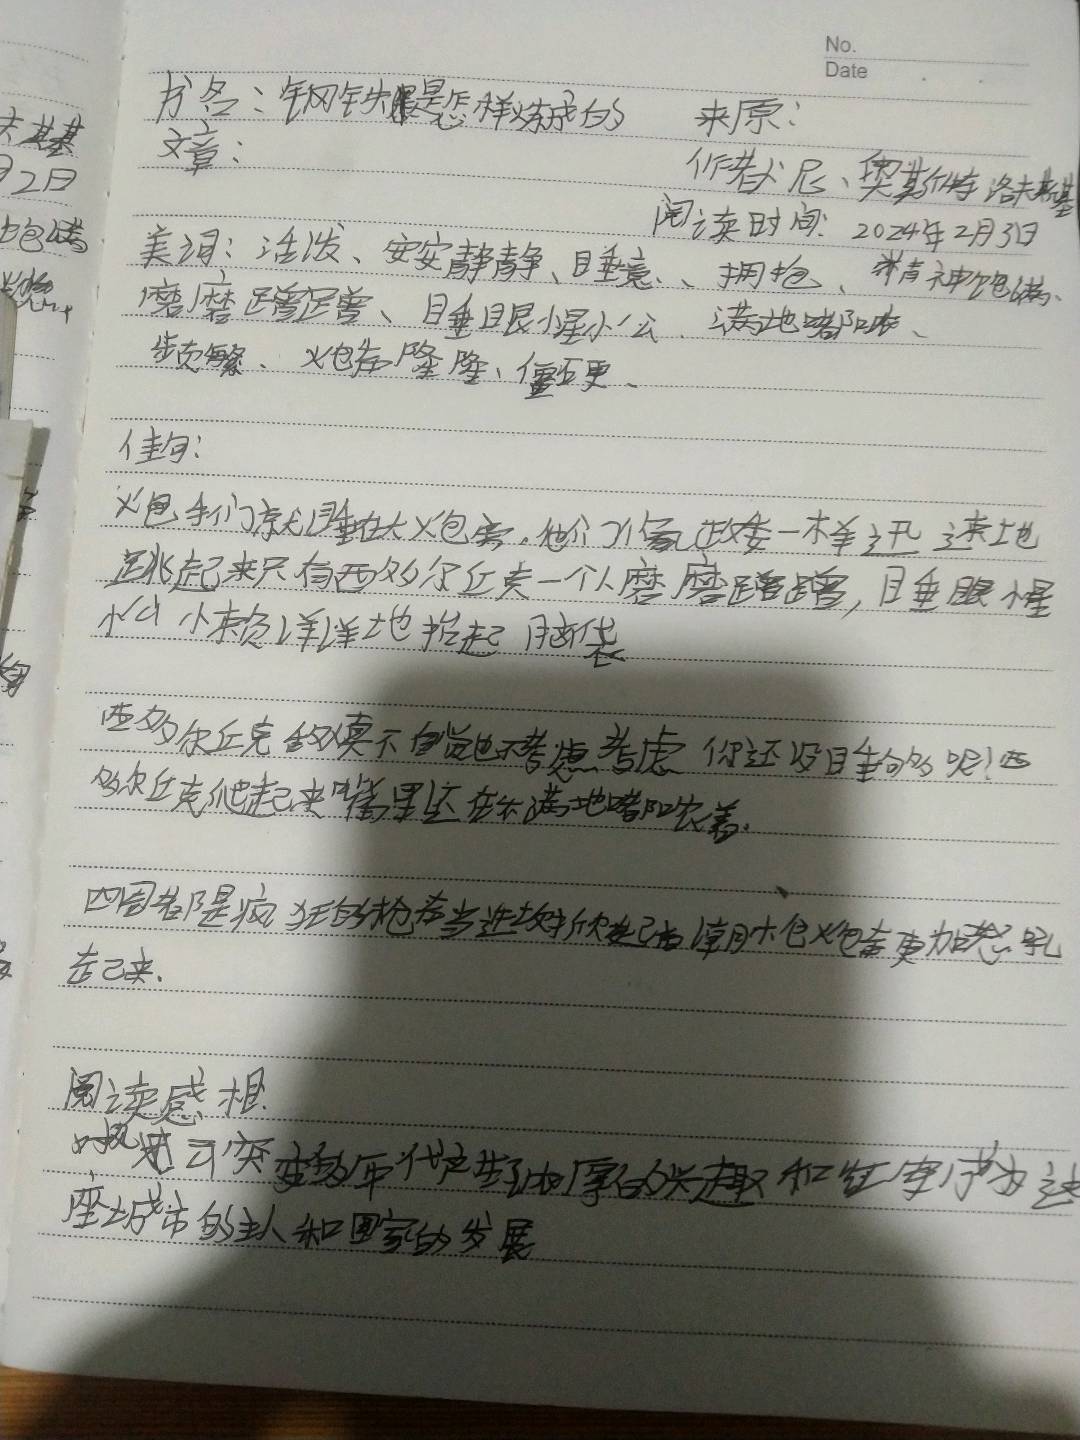 No.
Date
书名：钢铁是怎样炼成的 来原：
文章： 作者 尼、奥斯特洛夫斯基
阅读时间：2024年2月3日
美词：活泼、安安静静、睡意、拥抱、精神饱满、
磨磨蹭蹭、睡眼惺忪、满地嘟哝、
频繁、炮声隆隆、僵硬、
佳句：
炮手们就睡在大炮旁，他们 一样迅速地
跳起来只有西多尔丘克一个人磨磨蹭蹭，睡眼惺
忪 懒洋洋地抬起脑袋
西多尔丘克 真不自觉也不考虑考虑 你还没睡够呢！西
多尔丘克爬起来嘴里还在不满地嘟哝着.
四周都是疯狂的枪声当 大炮 更加怒吼
起来.
阅读感想
对风云突变的年代产生了浓厚的兴趣和红军成为这
座城市的主人和国家的发展